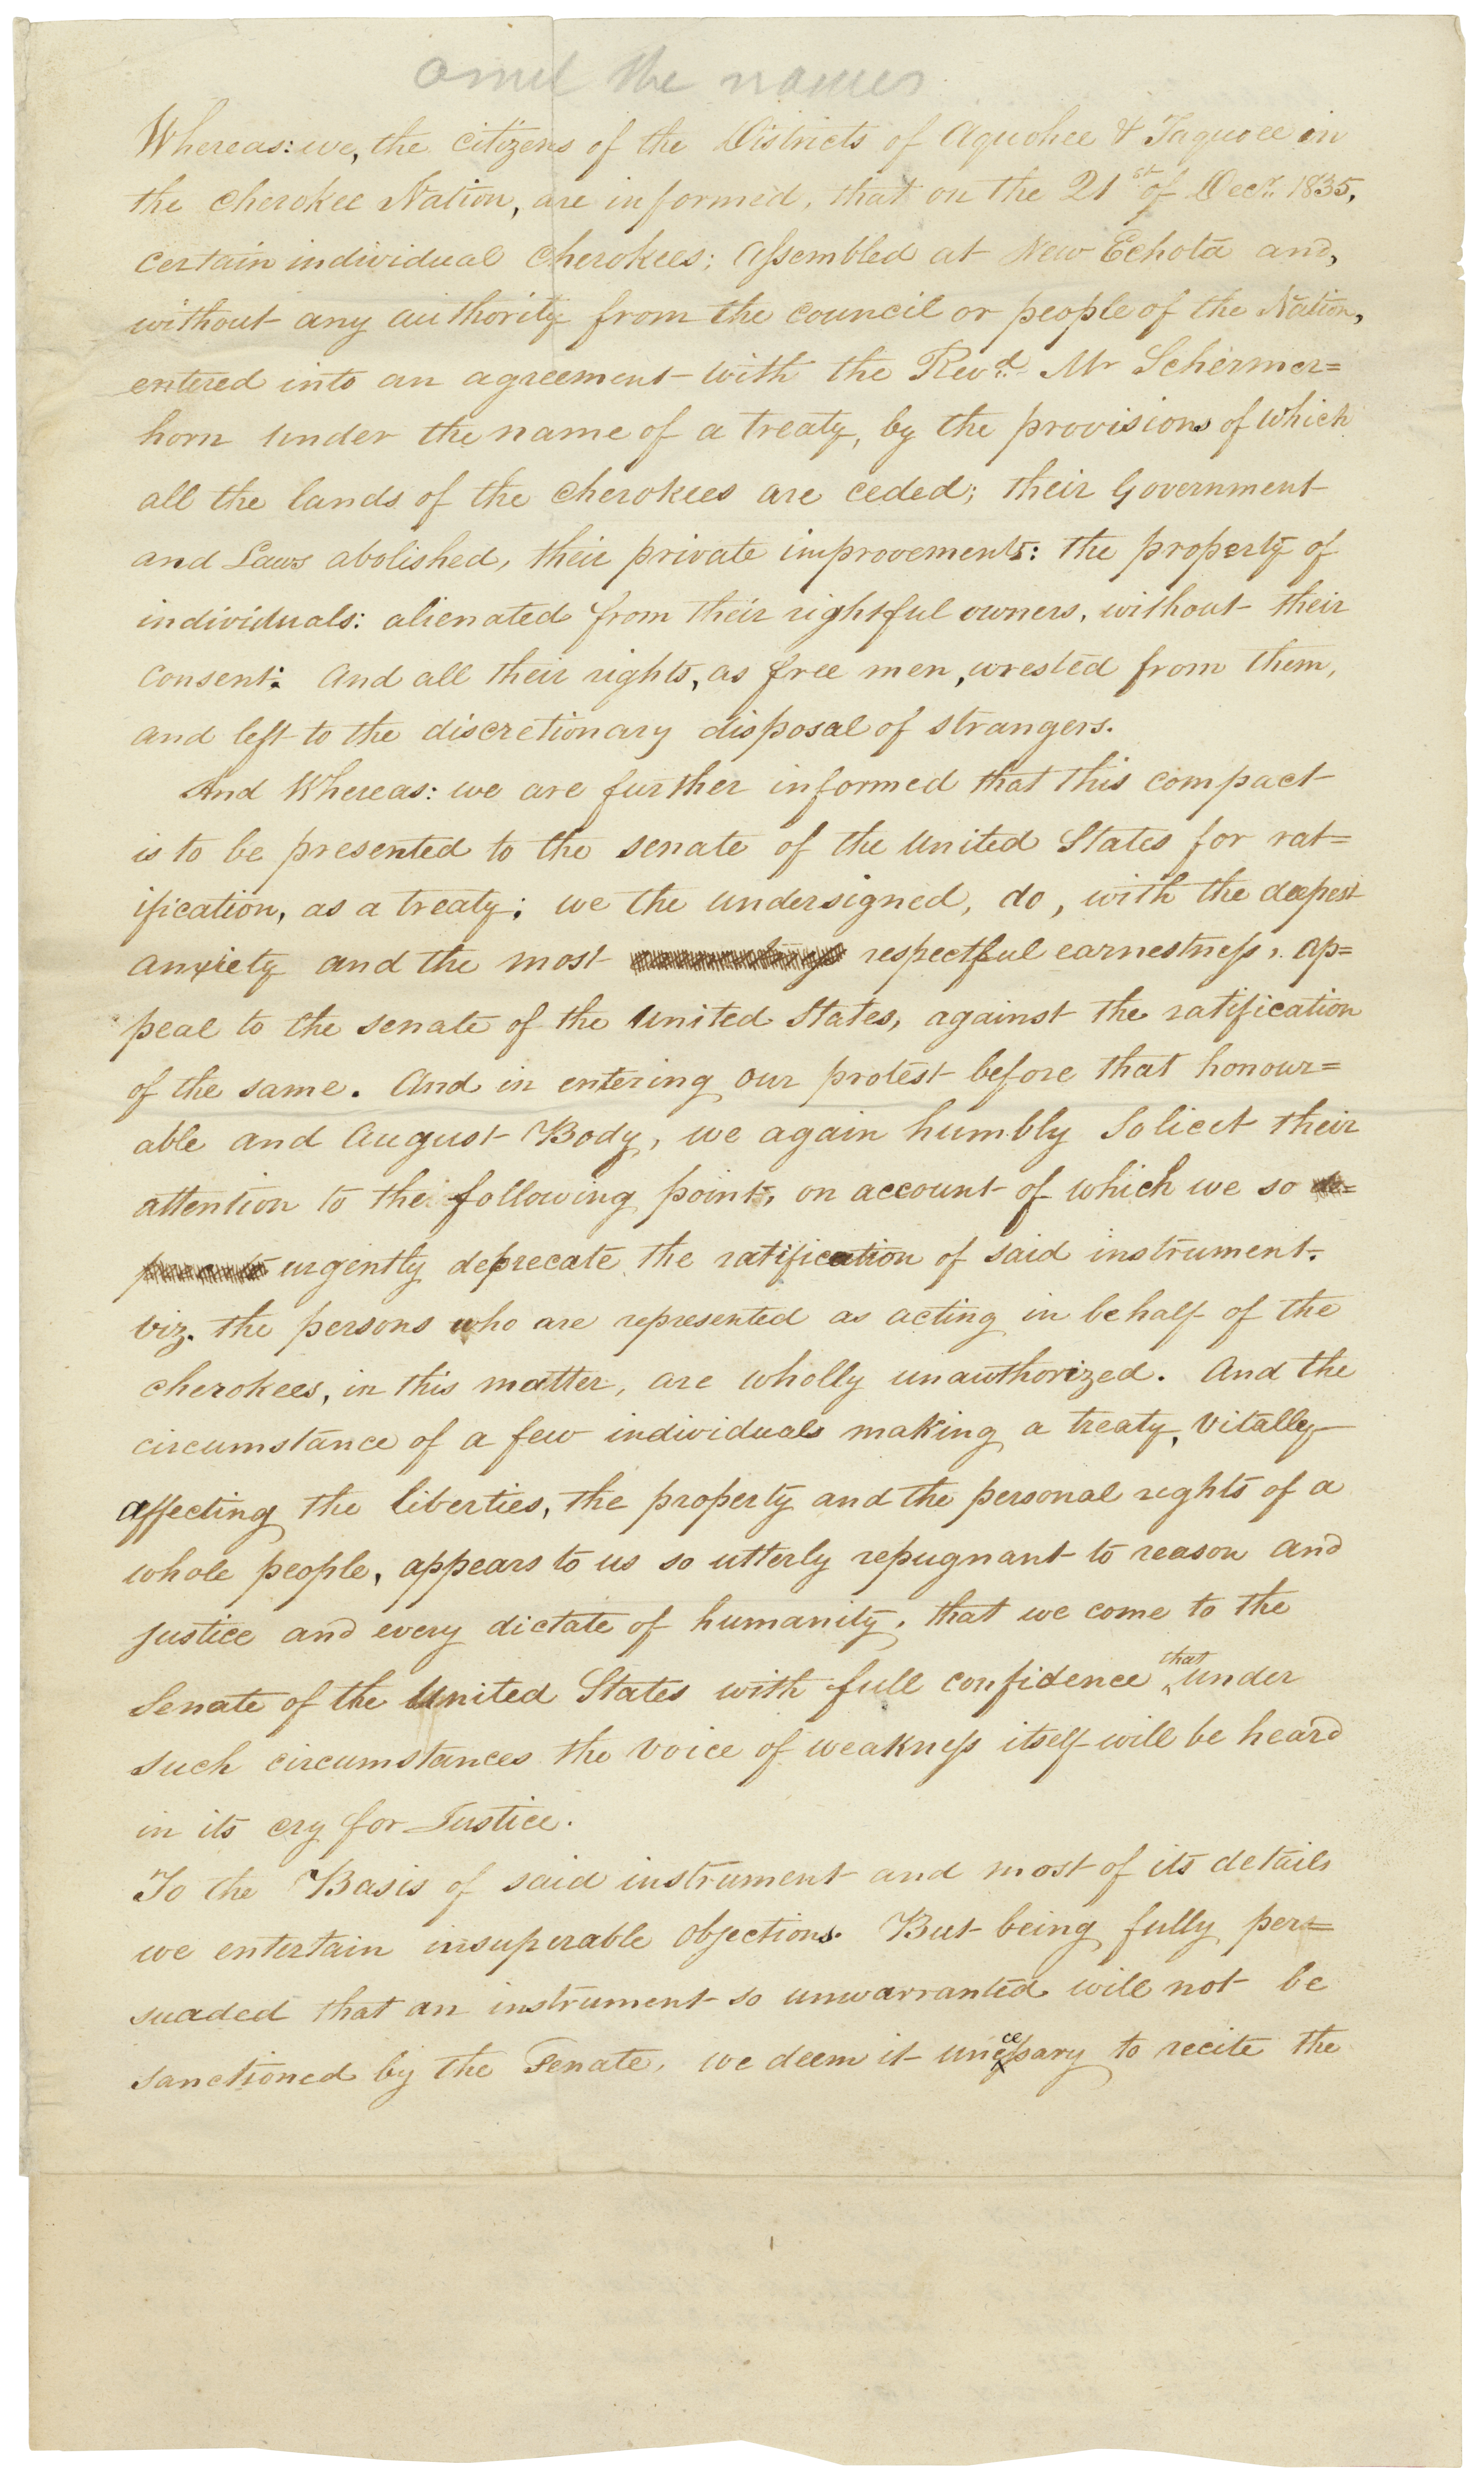 omit the names
Whereas: we, the citizens of the Districts of Aquohee & Taquoee in
the cherokee Nation, are informed, that on the 21st of Decr. 1835,
certain individual cherokees; Assembled at New Echota and,
without any authority from the council or people of the Nation,
entered into an agreement with the Revd. Mr Schermer=
horn under the name of a treaty, by the provisions of which
all the lands of the cherokees are ceded; their Government
and Laws abolished, their private improvements: the property of
individuals: alienated from their rightful owners, without their
consent: And all their rights, as free men, wrested from them,
and left to the discretionary disposal of strangers.
And Whereas: we are further informed that this compact
is to be presented to the senate of the United States for rat=
ification, as a treaty; we the undersigned, do, with the deepest
anxiety and the most respectful earnestness, ap=
peal to the senate of the United States, against the ratification
of the same. And in entering our protest before that honour=
able and August Body, we again humbly Solicit their
attention to the following point, on account of which we so de=
urgently deprecate the ratification of said instrument.
viz. the persons who are represented as acting in behalf of the
cherokees, in this matter, are wholly unauthorized. And the
circumstance of a few individuals making a treaty, vitally
affecting the liberties, the property and the personal rights of a
whole people, appears to us so utterly repugnant to reason and
justice and every dictate of humanity, that we come to the
Senate of the United States with full confidence that under
such circumstances the voice of weakness itself will be heard
in its cry for Justice.
To the Basis of said instrument and most of its details
we entertain insuperable objections. But being fully per=
suaded that an instrument so unwarranted will not be
sanctioned by the Senate, we deem it unecessary to recite the